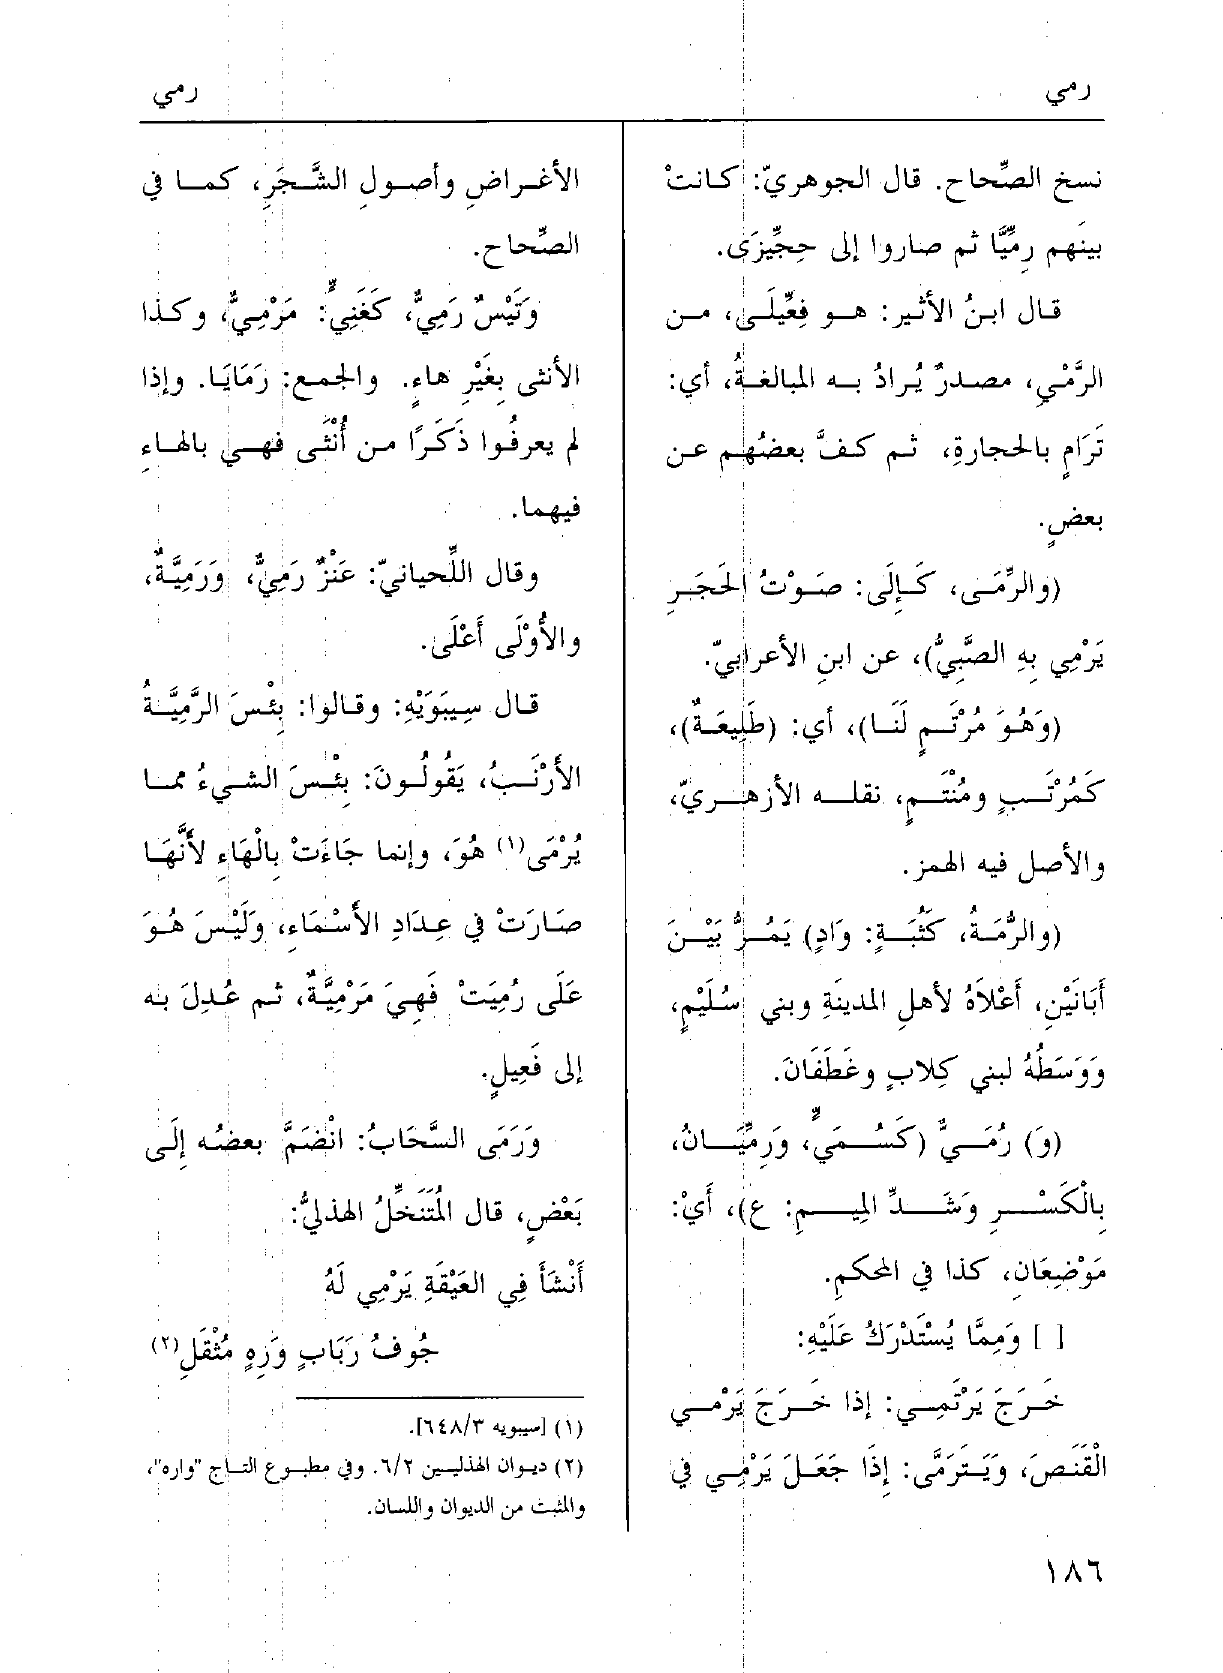 رمي
رمي
نسخ الصِّحاح. قال الجوهريّ: كانتْ
بينَهم رِمِّيًّا ثم صاروا إلى حِجِّيزَى.
قال ابنُ الأثير: هو فِعِّيلَى، من
الرَّمْيِ، مصدرٌ يُرادُ به المبالغةُ، أي:
تَرَامٍ بالحجارةِ، ثم كفَّ بعضُهم عن
بعضٍ.
(والرِّمَى، كَإِلَى: صَوْتُ الحَجَرِ
يَرْمِي بِهِ الصَّبِيُّ)، عن ابنِ الأعرابيّ.
(وَهُوَ مُرْتَمٍ لَنَا)، أي: (طَلِيعَةٌ)،
كَمُرْتَبٍ ومُنْتَمٍ، نقله الأزهريّ،
والأصل فيه الهمز.
(والرُّمَةُ، كَثُبَةٍ: وَادٍ) يَمُرُّ بَيْنَ
أَبَانَيْنِ، أَعْلاَهُ لأهلِ المدينَةِ وبني سُلَيْمٍ،
وَوَسَطُهُ لبني كِلابٍ وغَطَفَانَ.
(وَ) رُمَيٌّ (كَسُمَيٍّ، وَرِمِّيَانُ،
بِالْكَسْرِ وَشَدِّ المِيمِ: ع)، أَيْ:
مَوْضِعَانِ، كذا في المحكمِ.
[ ] وَمِمَّا يُسْتَدْرَكُ عَلَيْهِ:
خَرَجَ يَرْتَمِي: إذا خَرَجَ يَرْمِي
الْقَنَصَ، وَيَتَرَمَّى: إِذَا جَعَلَ يَرْمِي في
الأغراضِ وأصولِ الشَّجَرِ، كما في
الصِّحاح.
وَتَيْسٌ رَمِيٌّ، كَغَنِيٍّ: مَرْمِيٌّ، وكذا
الأنثى بِغَيْرِ هاءٍ. والجمع: رَمَايَا. وإذا
لم يعرفُوا ذَكَرًا من أُنْثَى فهي بالهاءِ
فيهما.
وقال اللِّحيانيّ: عَنْزٌ رَمِيٌّ، وَرَمِيَّةٌ،
والأُوْلَى أَعْلَى.
قال سِيبَوَيْهِ: وقالوا: بِئْسَ الرَّمِيَّةُ
الأَرْنَبُ، يَقُولُونَ: بِئْسَ الشيءُ مما
يُرْمَى(١) هُوَ، وإنما جَاءَتْ بِالْهَاءِ لأَنَّهَا
صَارَتْ في عِدَادِ الأَسْمَاءِ، وَلَيْسَ هُوَ
عَلَى رُمِيَتْ فَهِيَ مَرْمِيَّةٌ، ثم عُدِلَ به
إلى فَعِيلٍ.
وَرَمَى السَّحَابُ: انْضَمَّ بعضُه إِلَى
بَعْضٍ، قال المُتَنَخِّلُ الهذليُّ:
أَنْشَأَ فِي العَيْقَةِ يَرْمِي لَهُ
جُوفُ رَبَابٍ وَرَهٍ مُثْقَلِ(٢)
(١) [سيبويه ٦٤٨/٣].
(٢) ديوان الهذليين ٦/٢. وفي مطبوع التاج "واره"،
والمثبت من الديوان واللسان.
١٨٦